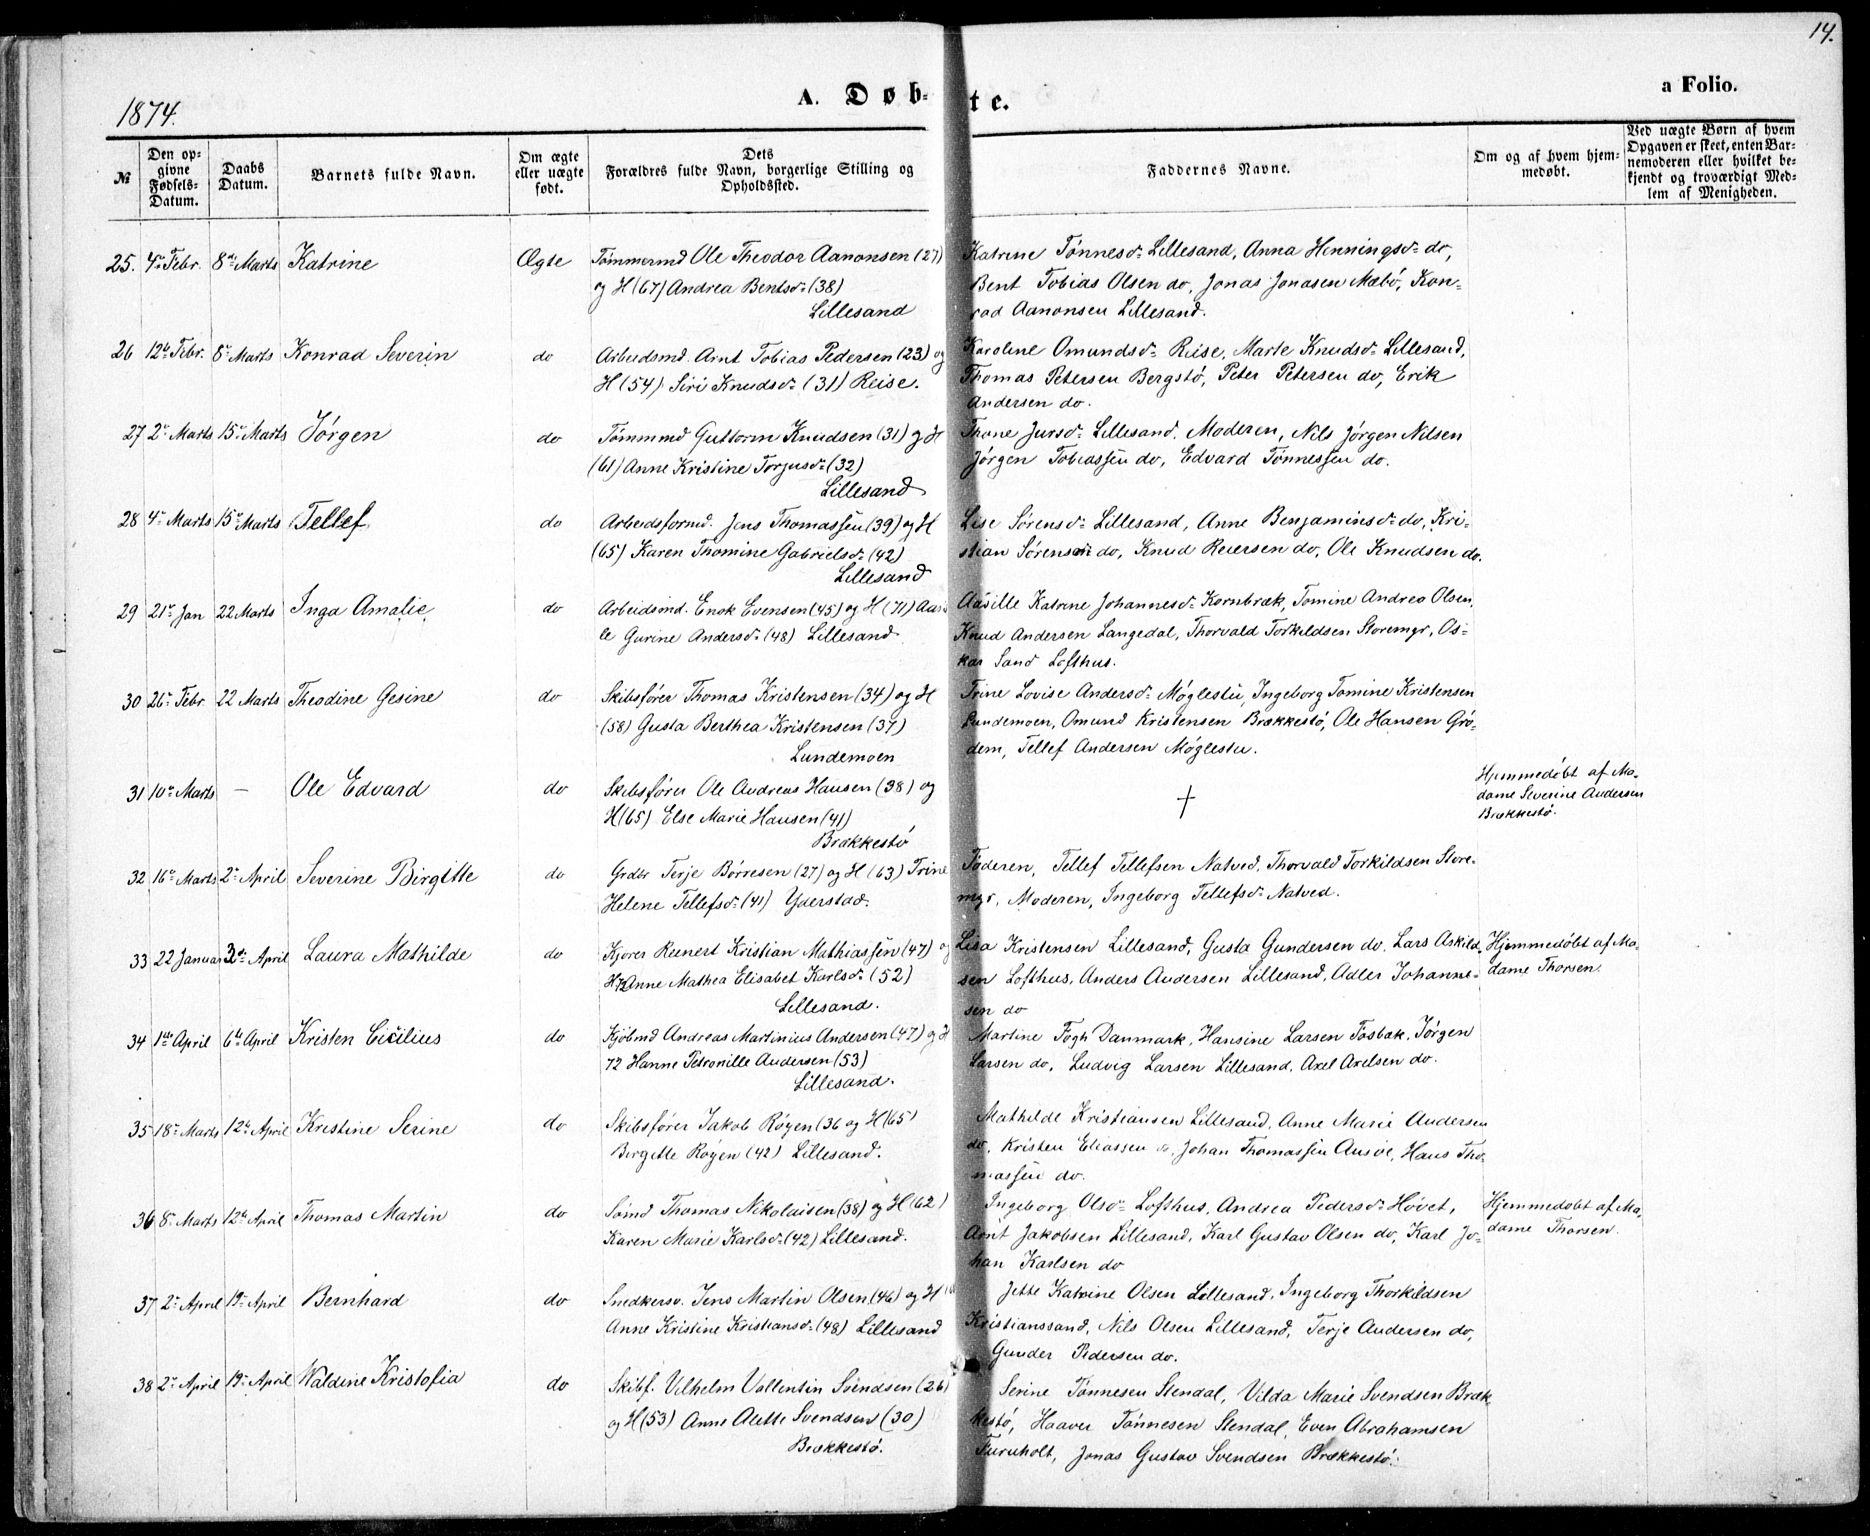 14.
1874.
A. Døb-
te.
a Folio.
№
Den op-
givne
Fødsels-
Datum.
Daabs
Datum.
Barnets fulde Navn.
Om ægte
eller uægte
født.
Dets
Forældres fulde Navn, borgerlige Stilling og
Opholdssted.
Faddernes Navne.
Om og af hvem hjem-
medøbt.
Ved uægte Børn af hvem
Opgaven er skeet, enten Bar-
nemoderen eller hvilket be-
kjendt og troværdigt Med-
lem af Menigheden.
25. 4de Febr. 8de Marts Katrine Ægte Tømmermd Ole Theodor Aanonsen (27)
og H (67) Andrea Bentsdr (38)
Lillesand
Katrine Tønnesdr Lillesand, Anna Henningsdr do,
Bent Tobias Olsen do, Jonas Jonasen Mæbø, Kon-
rad Aanonsen Lillesand.
26 12te Febr. 8de Marts Konrad Severin do Arbeidsmd. Arnt Tobias Pedersen (23) og
H (54) Siri Knudsdr (31) Reise.
Karoline Omundsdr Reise, Marte Knudsdr Lillesand,
Thomas Petersen Bergstø, Peter Petersen do, Erik
Andersen do.
27 2de Marts 15de Marts Jørgen do Tømmmd Guttorm Knudsen (31) og H
(61) Anne Kristine Torjusdr (32)
Lillesand
Thone Jursdr Lillesand. Moderen, Nils Jørgen Nilsen
Jørgen Tobiassen do, Edvard Tønnessen do.
28 4de Marts 15de Marts Tellef do Arbeidsformd. Jens Thomassen (39) og H
(65) Karen Thomine Gabrielsdr (42)
Lillesand
Lise Sørensdr Lillesand, Anne Benjaminsdr do, Kri-
stian Sørensen do, Knud Reiersen do, Ole Knudsen do.
29 21de Jan 22 Marts Inga Amalie do Arbeidsmd. Enok Evensen (45) og H (71) Aasil-
le Gurine Andersdr (48) Lillesand
Aasille Katrine Johannesdr Kornbræk, Tomine Andrea Olsen,
Knud Andersen Langedal, Thorvald Torkildsen Storemyr, Os-
kar Sand Lofthus.
30 26de Febr 22 Marts Theodine Gesine do Skibsfører Thomas Kristensen (34) og H
(58) Gusta Berthea Kristensen (37)
Lundemoen
Trine Lovise Andersdr Møglestu, Ingeborg Tomine Kristensen
Lundemoen, Omund Kristensen Brækkestø, Ole Hansen Grø-
dem, Tellef Andersen Møglestu.
31 10de Marts — Ole Edvard do Skibsfører Ole Andreas Hansen (38) og
H (65) Else Marie Hansen (41)
Brækkestø
†
Hjemmedøbt af Ma-
dame Severine Andersen
Brækkestø.
32 16de Marts 2de April Severine Birgitte do Grdbr Terje Børresen (27) og H (63) Trine
Helene Tellefsdr (41) Yderstad.
Faderen, Tellef Tellefsen Natved, Thorvald Torkildsen Store-
myr, Moderen, Ingeborg Tellefsdr Natved.
33 22 Januar 3de April Laura Mathilde do Kjører Reinert Kristian Mathiassen (47) og
H 72 Anne Mathea Elisabet Karlsdr (52)
Lillesand.
Lisa Kristensen Lillesand, Gusta Gundersen do. Lars Askild-
sen Lofthus, Anders Andersen Lillesand, Adler Johanne-
sen do
Hjemmedøbt af Ma-
dame Thorsen.
34 1ste April 6te April Kristen Cicilius do Kjøbmd Andreas Martinius Andersen (47) og H
72 Hanne Petronille Andersen (53)
Lillesand.
Martine Fogh Danmark, Hansine Larsen Fosbæk, Jørgen
Larsen do, Ludvig Larsen Lillesand, Axel Axelsen do.
35 18de Marts 12te April Kristine Serine do Skibsfører Jakob Røyen (36 og H (65)
Birgitte Røyen (42) Lillesand.
Mathilde Kristiansen Lillesand, Anne Marie Andersen
do, Kristen Eliassen do, Johan Thomassen Ausve, Hans Tho-
massen do.
36 8de Marts 12te April Thomas Martin do Sømd Thomas Nikolaisen (38) og H (62)
Karen Marie Karlsdr (42) Lillesand.
Ingeborg Olsdr Lofthus, Andrea Pedersdr Høvet,
Arnt Jakobsen Lillesand, Karl Gustav Olsen do, Karl Jo-
han Karlsen do
Hjemmedøbt af Ma-
dame Thorsen.
37 2de April 19de April Bernhard do Snedkersv. Jens Martin Olsen (46) og H
Anne Kristine Kristiansdr (48) Lillesand
Jette Katrine Olsen Lillesand, Ingeborg Thorkildsen
Kristianssand, Nils Olsen Lillesand, Terje Andersen do,
Gunder Pedersen do.
38 2de April 19de April Waldine Kristofia do Skibsf. Vilhelm Vallentin Svendsen (26)
og H (53) Anne Alette Svendsen (30)
Brækkestø.
Serine Tønnesen Stendal, Vilda Marie Svendsen Bræk-
kestø, Haaver Tønnesen Stendal, Even Abrahamsen
Furuholt, Jonas Gustav Svendsen Brækkestø.